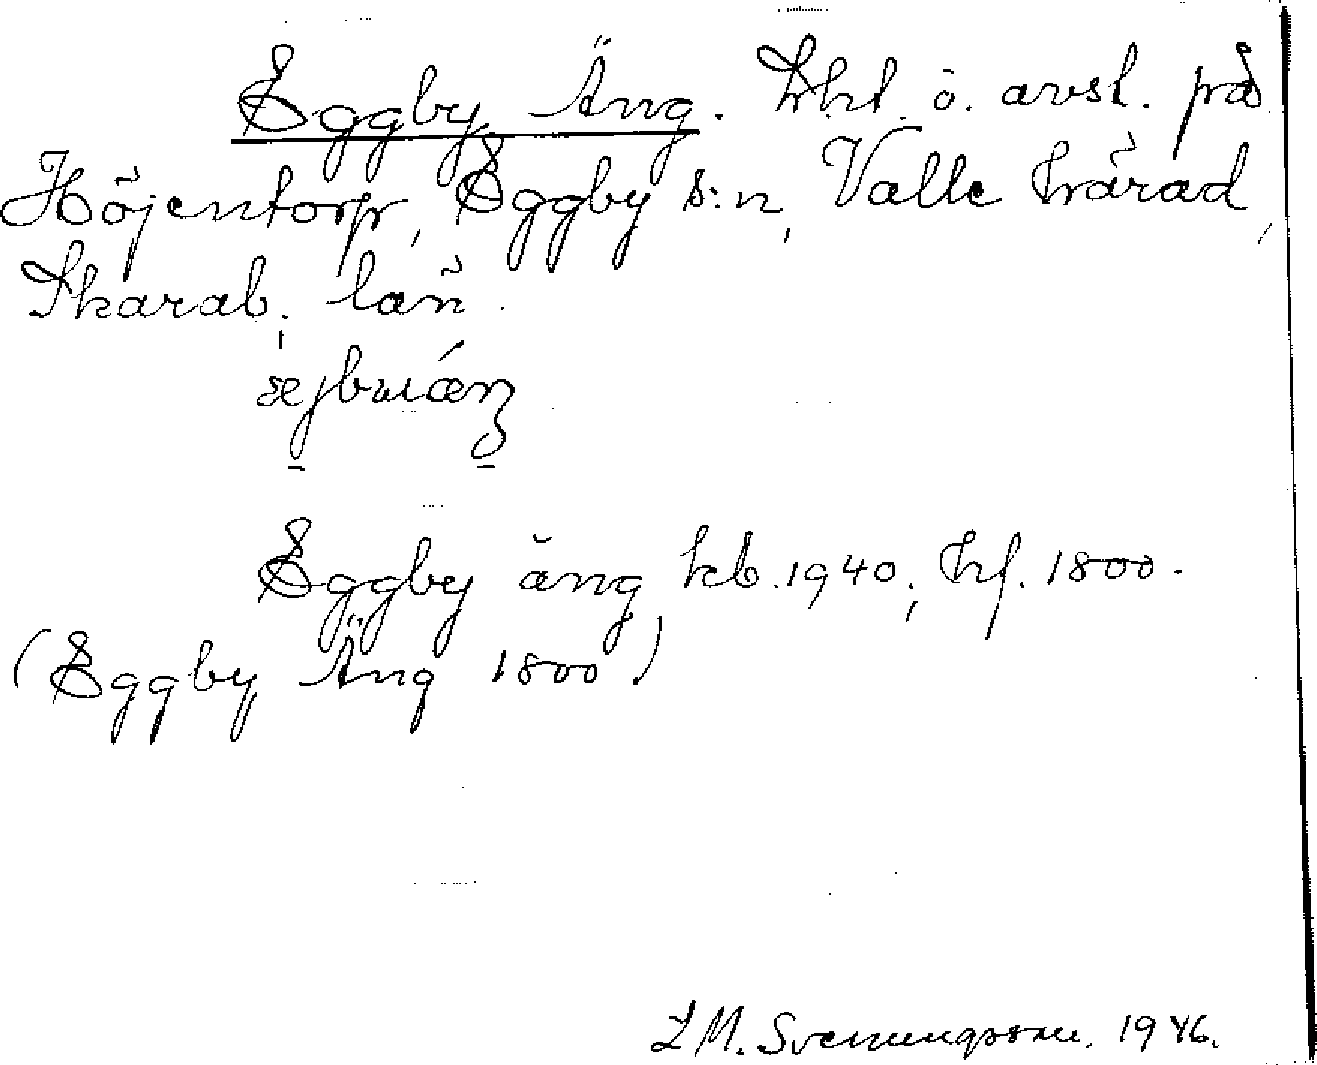 Eggby Äng. Lht. o. avsl. på
Höjentorp, Eggby s:n, Valle härad,
Skarab. län.
Eggby äng kb. 1940; hf. 1800.
(Eggby Äng 1800)
L M. Svenungsson. 1946.